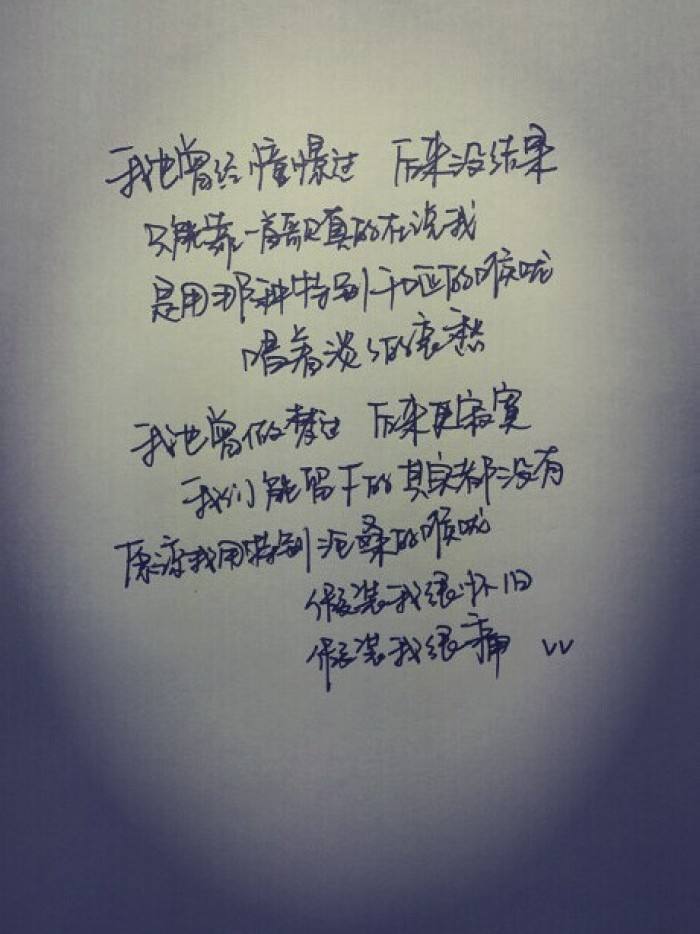 我也曾经憧憬过 后来没结果
只能靠一首歌真的在说我
是用那种特别干哑的喉咙
唱着淡淡的哀愁
我也曾做梦过 后来更寂寞
我们能留下的其实都没有
原谅我用特别沧桑的喉咙
假装我很怀旧
假装我很痛 vv